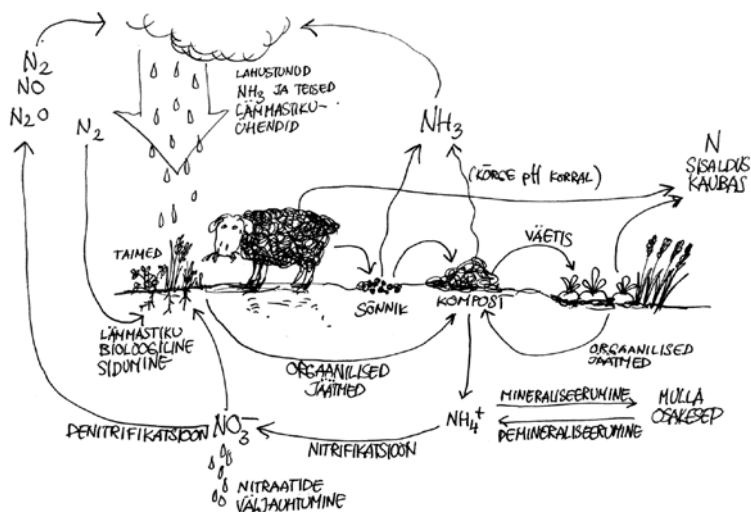 N₂
NO
N₂O
N₂
LAHUSTUNUD
NH₃ JA TEISED
LÄMMASTIKU-
ÜHENDID
NH₃
(KÕRGE pH KORRAL)
N
SISALDUS
KAUBAS
TAIMED
VÄETIS
SÕNNIK
KOMPOST
LÄMMASTIKU
BIOLOOGILINE
SIDUMINE
ORGAANILISED
JÄÄTMED
ORGAANILISED
JÄÄTMED
DENITRIFIKATSIOON
NO₃⁻
NITRIFIKATSIOON
NH₄⁺
MINERALISEERUMINE
DEMINERALISEERUMINE
MULLA
OSAKESED
NITRAATIDE
VÄLJAUHTUMINE